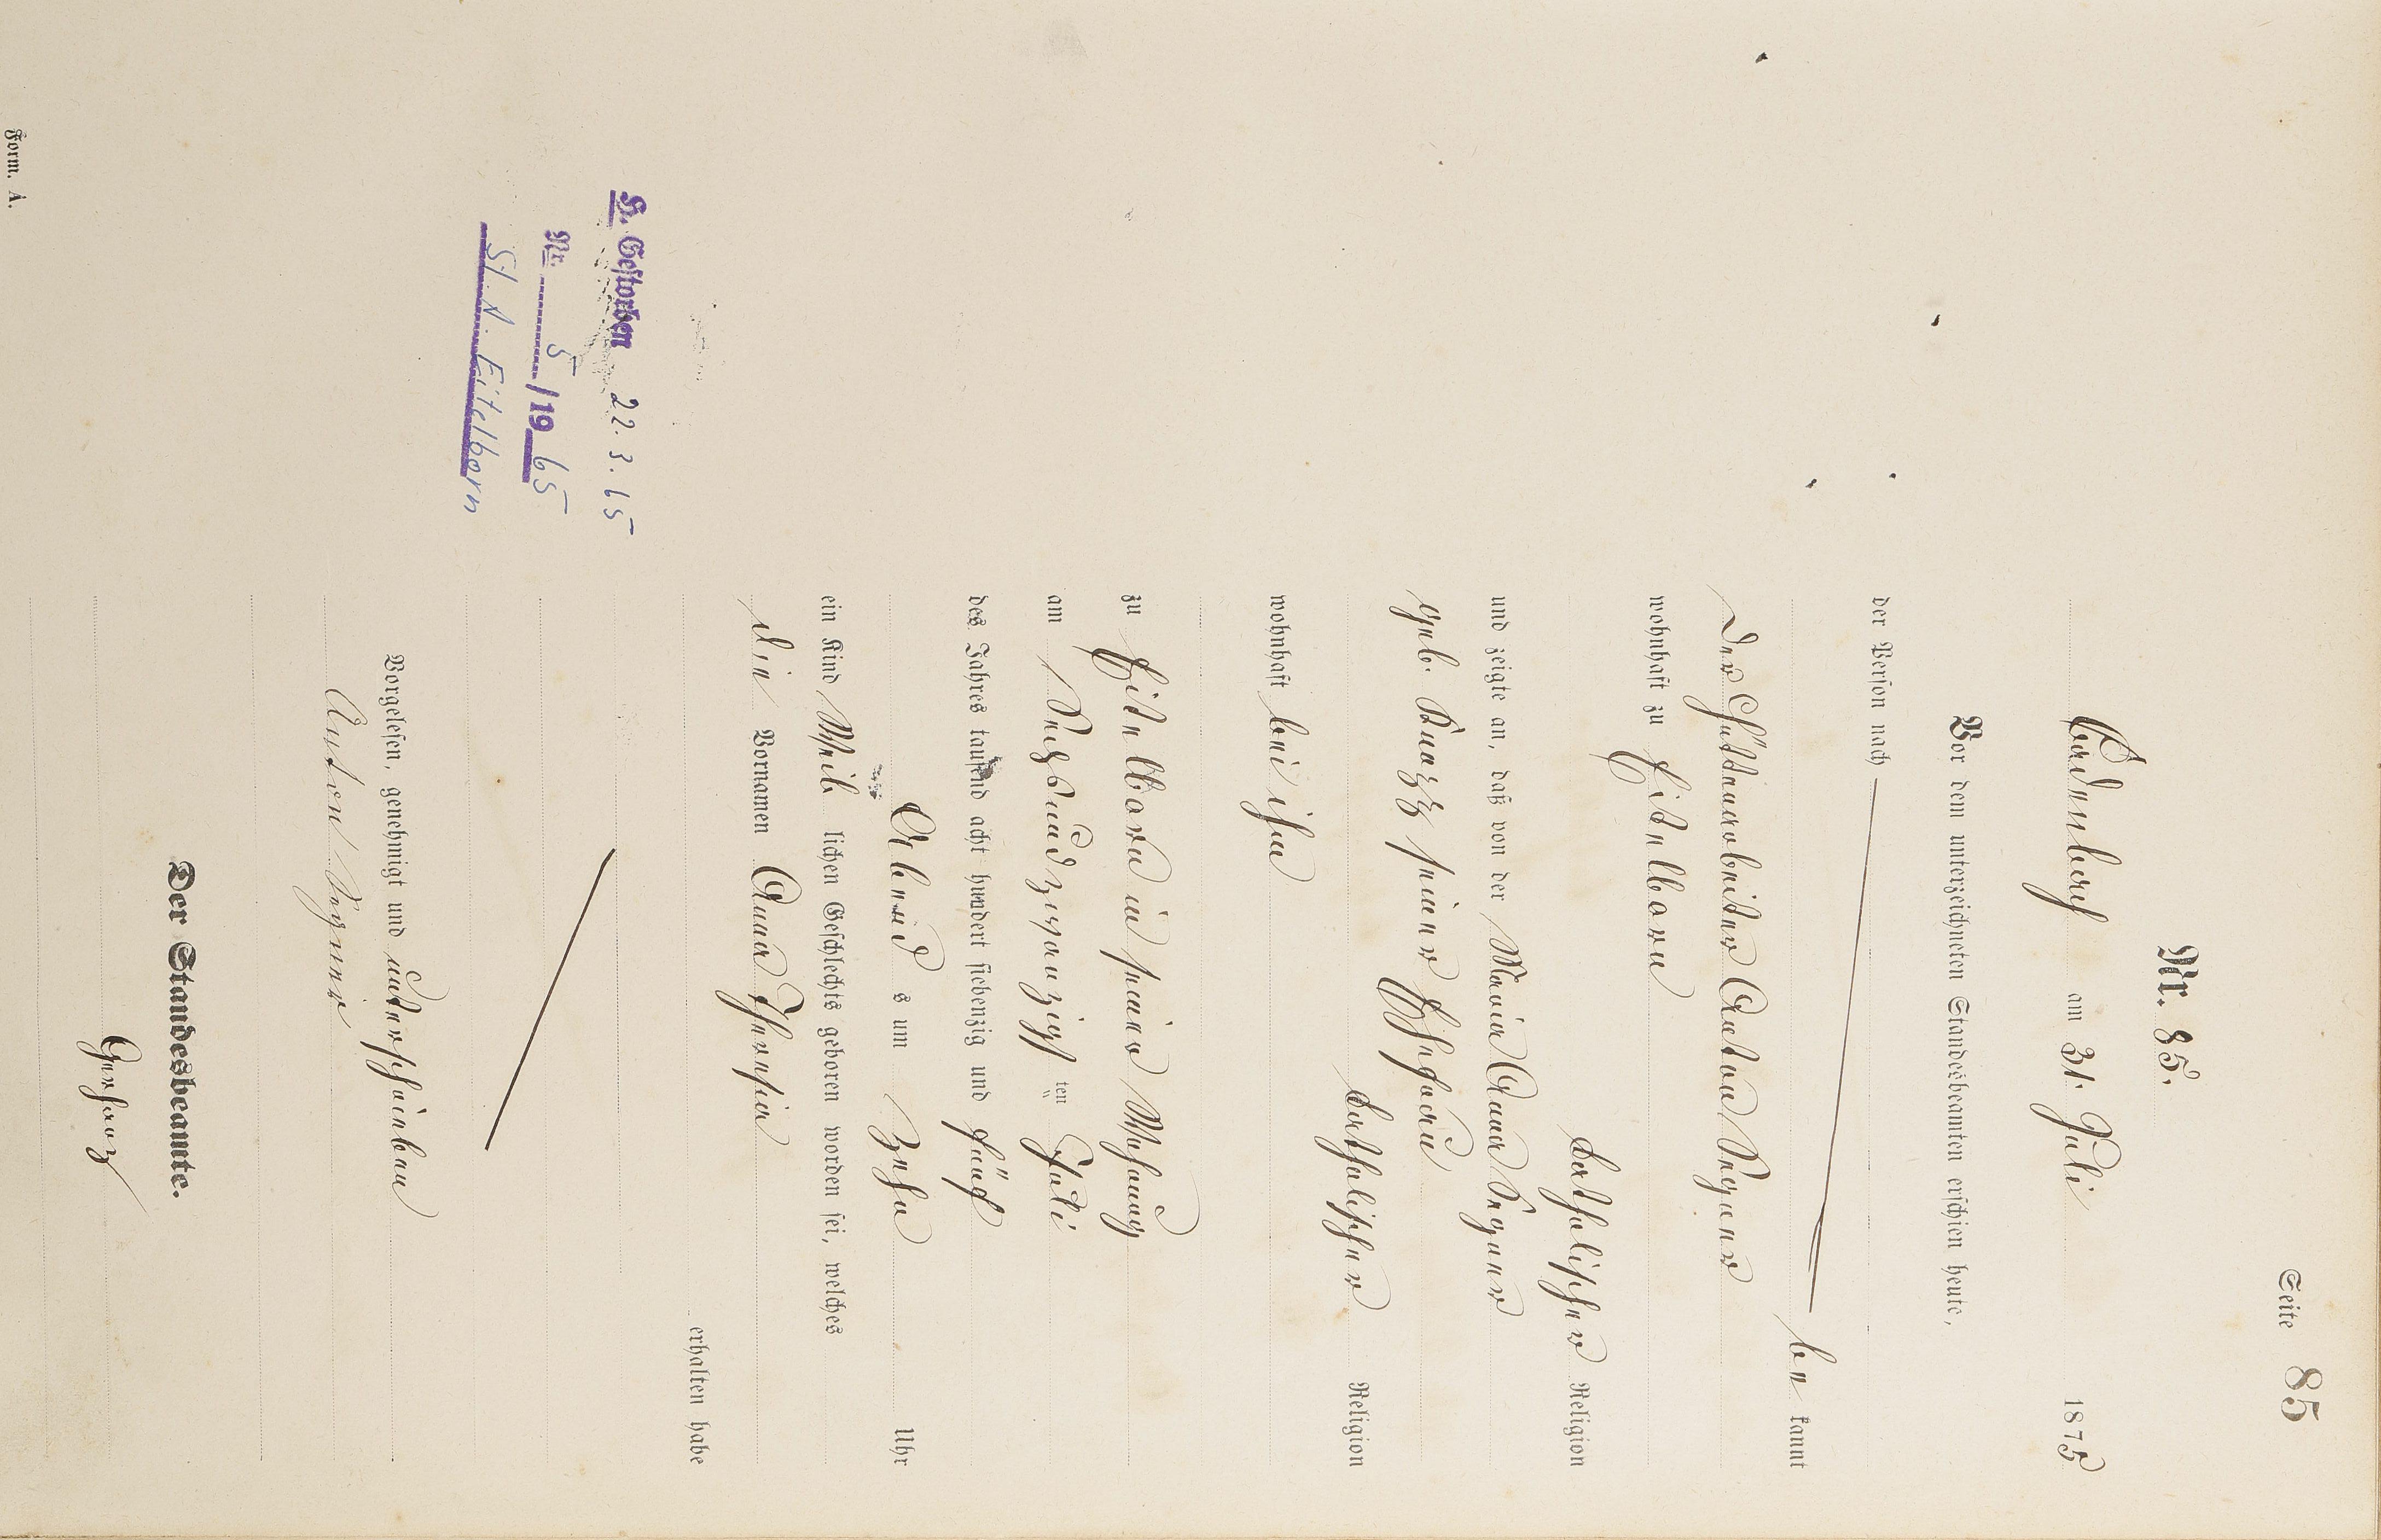 Seite 85
Nr. 85.
Cadenbach am 31. Juli 1875
Vor dem unterzeichneten Standesbeamten erschien heute,
der Person nach
be kannt
der Hüttenarbeiter Anton Wegner
wohnhaft zu Eitelborn
katholischer Religion
und zeigte an, daß von der Maria Anna Wegner
geb. Knazz seiner Ehefrau
katholischer Religion
wohnhaft bei ihm
zu Eitelborn in seiner Wohnung
am Sechsundzwanzigs ten Juli
des Jahres tausend acht hundert siebenzig und fünf
Abends um Zehn Uhr
ein Kind Weib lichen Geschlechts geboren worden sei, welches
die Vornamen Anna Theresia
erhalten habe
H. Gestorben 22.3.65
Nr. 5/1965
St.A. Eitelborn
Vorgelesen, genehmigt und unterschrieben
Anton Wegner
Der Standesbeamte.
Gerharz
Form. A.